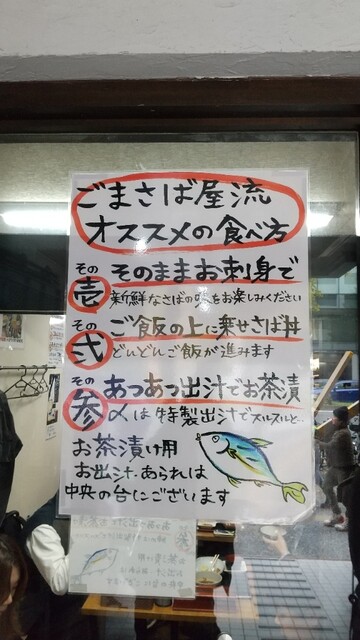 ごまさば屋流
オススメの食べ方
その壱 そのままお刺身で
新鮮なさばの味をお楽しみください
その弐 ご飯の上に乗せさば丼
どんどんご飯が進みます
その参 あつあつ出汁でお茶漬
〆は特製出汁でスルスルと…
お茶漬け用
お出汁・あられは
中央の台にございます